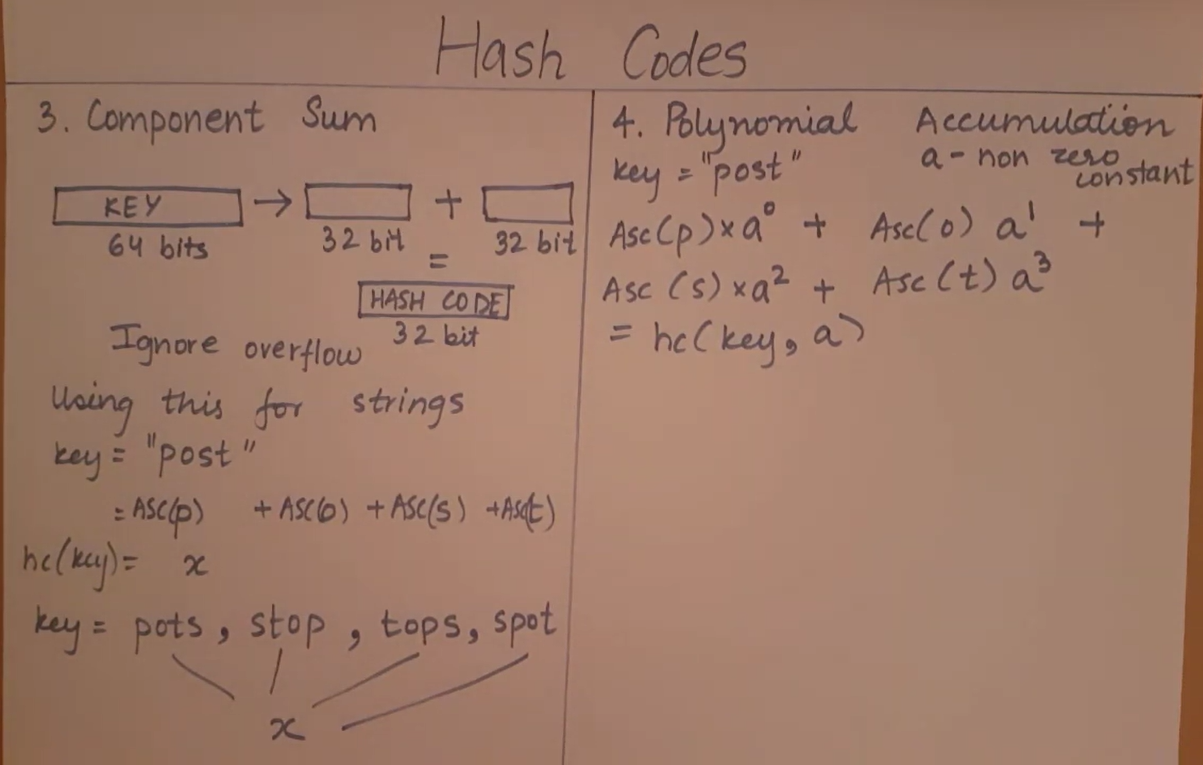 Hash Codes
3. Component Sum
KEY → +
64 bits 32 bit 32 bit
=
HASH CODE
32 bit
Ignore overflow
Using this for strings
key = "post"
= ASC(p) + ASC(o) + ASC(s) + Asc(t)
hc(key) = x
key = pots, stop, tops, spot
x
4. Polynomial Accumulation
key = "post" a - non zero constant
Asc(p) × a⁰ + Asc(o) a¹ +
Asc (s) × a² + Asc (t) a³
= hc(key, a)